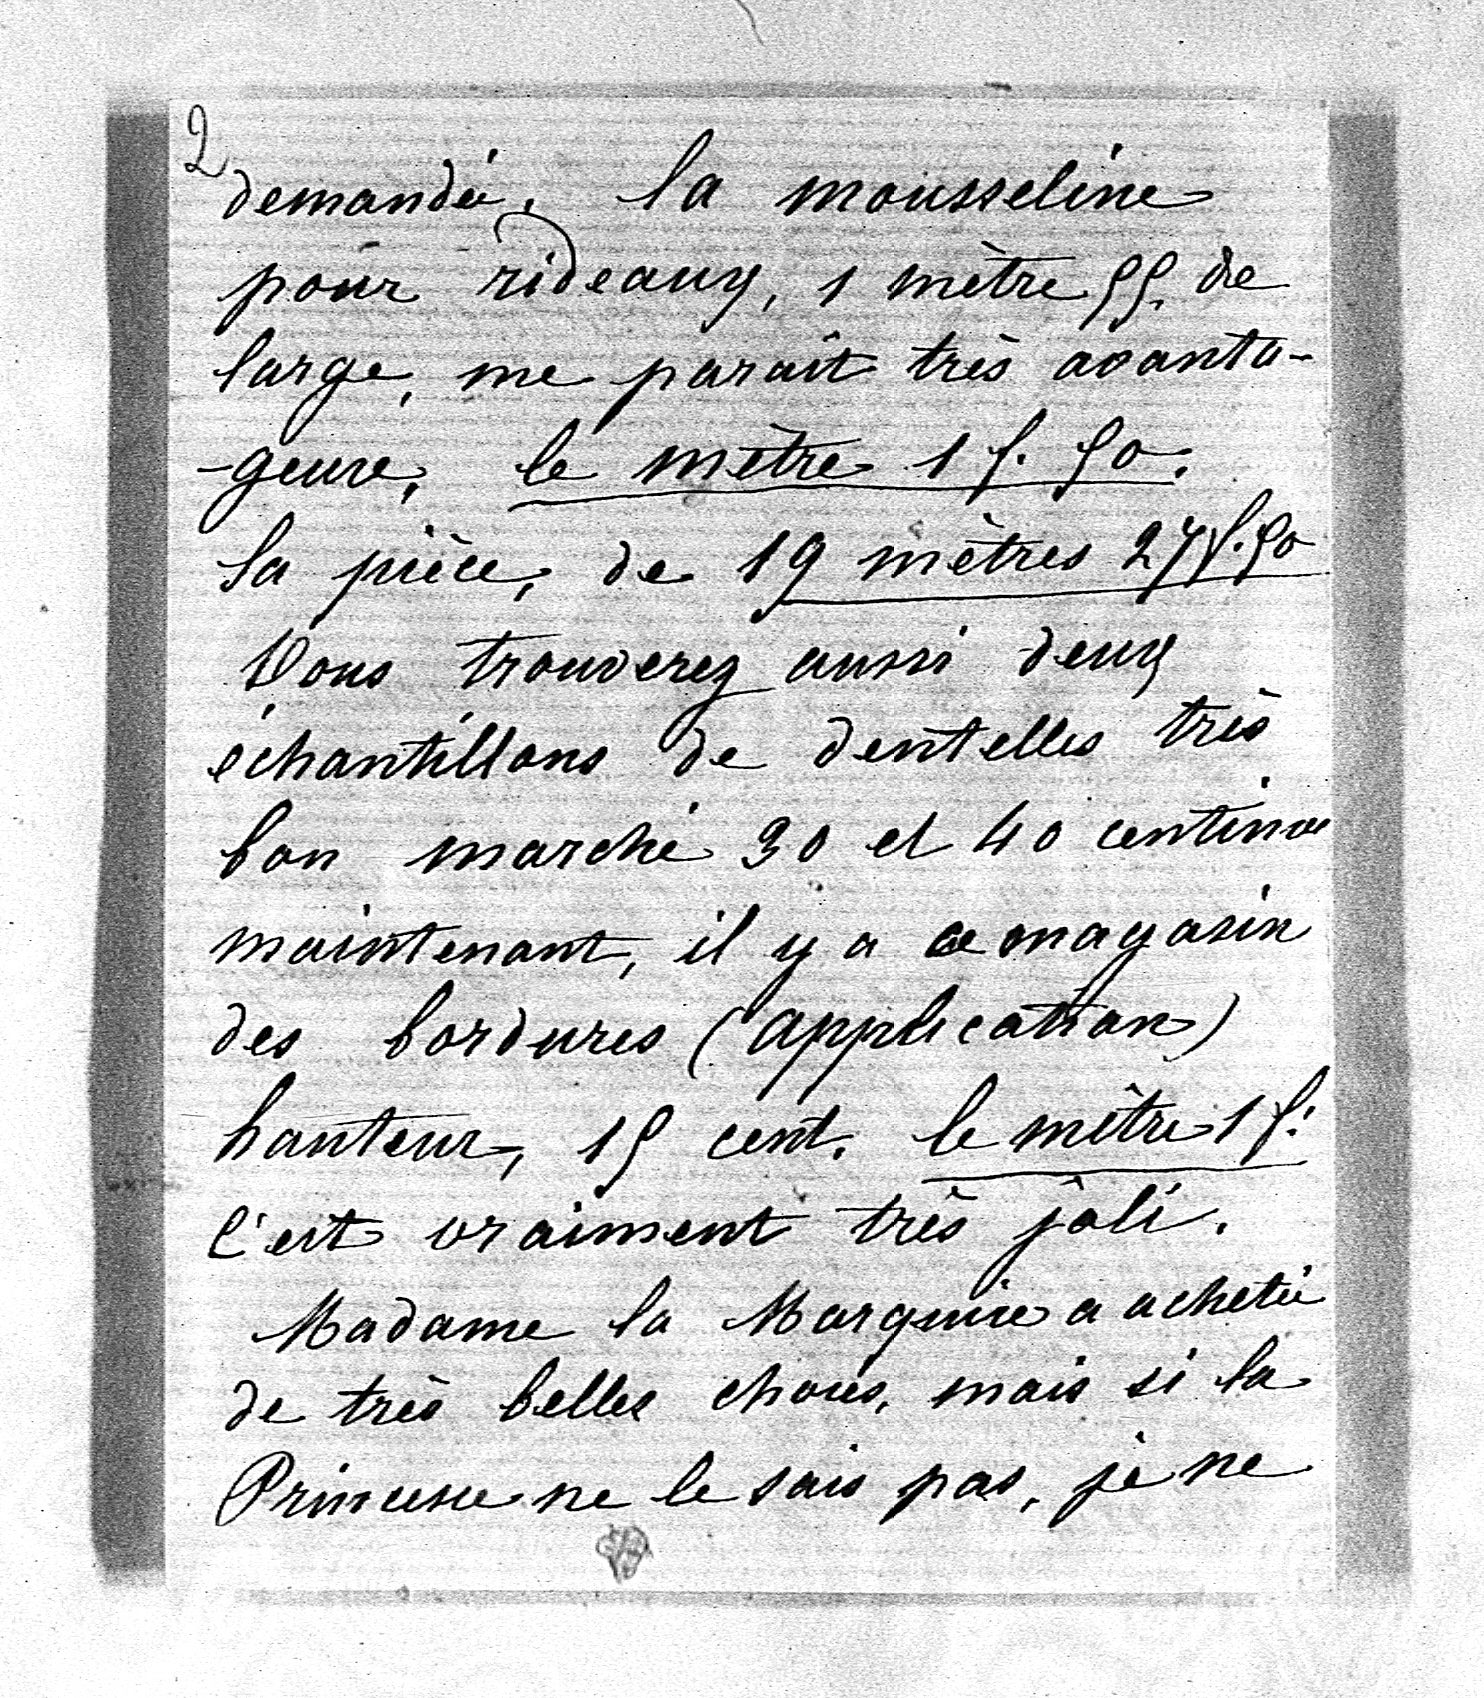 2
demandée. la mousseline
pour rideaux, 1 mètre 55. de
large, me paraît très avanta-
-geuse, le mètre 1 f. 50.
la pièce, de 19 mètres 27 f. 50
Vous trouverez aussi deux
échantillons de dentelles très
bon marché 30 et 40 centimes
maintenant, il y a ce magasin
des bordures (application)
hauteur, 15 cent. le mètre 1 f.
C'est vraiment très joli.
Madame la Marquise a acheté
de très belles choses, mais si la
Princesse ne le sais pas, je ne